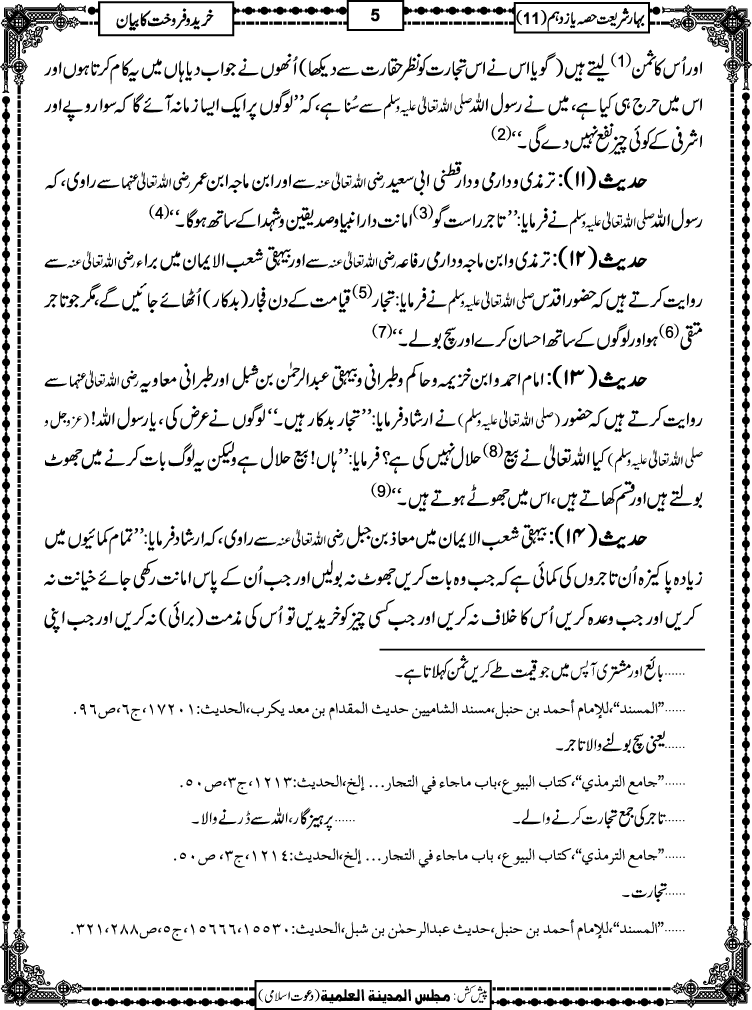 بہار شریعت حصہ یازدہم (11)
5
خرید و فروخت کا بیان
اور اُس کا ثمن (1) لیتے ہیں (گویا اس نے اس تجارت کو نظر حقارت سے دیکھا) اُنھوں نے جواب دیا ہاں میں یہ کام کرتا ہوں اور
اس میں حرج ہی کیا ہے، میں نے رسول اللہ صلی اللہ تعالیٰ علیہ وسلم سے سُنا ہے، کہ ’’لوگوں پر ایک ایسا زمانہ آئے گا کہ سوا روپے اور
اشرفی کے کوئی چیز نفع نہیں دے گی۔‘‘ (2)
حدیث (۱۱): ترمذی و دارمی و دارقطنی ابی سعید رضی اللہ تعالیٰ عنہ سے اور ابن ماجہ ابن عمر رضی اللہ تعالیٰ عنہما سے راوی، کہ
رسول اللہ صلی اللہ تعالیٰ علیہ وسلم نے فرمایا: ’’تاجر راست گو (3) امانت دار انبیا و صدیقین و شہدا کے ساتھ ہوگا۔‘‘ (4)
حدیث (۱۲): ترمذی و ابن ماجہ و دارمی رفاعہ رضی اللہ تعالیٰ عنہ سے اور بیہقی شعب الایمان میں براء رضی اللہ تعالیٰ عنہ سے
روایت کرتے ہیں کہ حضور اقدس صلی اللہ تعالیٰ علیہ وسلم نے فرمایا: تجار (5) قیامت کے دن فجار (بدکار) اُٹھائے جائیں گے، مگر جو تاجر
متقی (6) ہو اور لوگوں کے ساتھ احسان کرے اور سچ بولے۔‘‘ (7)
حدیث (۱۳): امام احمد و ابن خزیمہ و حاکم و طبرانی و بیہقی عبدالرحمٰن بن شبل اور طبرانی معاویہ رضی اللہ تعالیٰ عنہما سے
روایت کرتے ہیں کہ حضور (صلی اللہ تعالیٰ علیہ وسلم) نے ارشاد فرمایا: ’’تجار بدکار ہیں۔‘‘ لوگوں نے عرض کی، یا رسول اللہ! (عزوجل و
صلی اللہ تعالیٰ علیہ وسلم) کیا اللہ تعالیٰ نے بیع (8) حلال نہیں کی ہے؟ فرمایا: ’’ہاں! بیع حلال ہے ولیکن یہ لوگ بات کرنے میں جھوٹ
بولتے ہیں اور قسم کھاتے ہیں، اس میں جھوٹے ہوتے ہیں۔‘‘ (9)
حدیث (۱۴): بیہقی شعب الایمان میں معاذ بن جبل رضی اللہ تعالیٰ عنہ سے راوی، کہ ارشاد فرمایا: ’’تمام کمائیوں میں
زیادہ پاکیزہ اُن تاجروں کی کمائی ہے کہ جب وہ بات کریں جھوٹ نہ بولیں اور جب اُن کے پاس امانت رکھی جائے خیانت نہ
کریں اور جب وعدہ کریں اُس کا خلاف نہ کریں اور جب کسی چیز کو خریدیں تو اُس کی مذمت (برائی) نہ کریں اور جب اپنی
......بائع اور مشتری آپس میں جو قیمت طے کریں ثمن کہلاتا ہے۔
......”المسند“،للإمام أحمد بن حنبل،مسند الشاميين حديث المقدام بن معد يكرب،الحديث:١٧٢٠١،ج٦،ص٩٦.
......یعنی سچ بولنے والا تاجر۔
......”جامع الترمذي“،كتاب البيوع،باب ماجاء في التجار... إلخ،الحديث:١٢١٣،ج٣،ص٥٠.
......تاجر کی جمع تجارت کرنے والے۔ ......پرہیزگار، اللہ سے ڈرنے والا۔
......”جامع الترمذي“،كتاب البيوع، باب ماجاء في التجار... إلخ،الحديث:١٢١٤،ج٣، ص٥٠.
......تجارت۔
......”المسند“،للإمام أحمد بن حنبل،حديث عبدالرحمٰن بن شبل،الحديث:١٥٥٣٠،١٥٦٦٦،ج٥،ص٢٨٨،٣٢١.
پیش کش: مجلس المدينة العلمية (دعوت اسلامی)